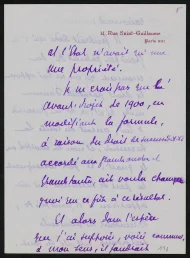 11, Rue Saint-Guillaume
Paris VIIe
et l'Etat n'avait qu'une
nue propriété.
Je ne crois pas que l'
avant-projet de 1900, en
modifiant la formule,
à raison du droit de
accordé aux
ait voulu changer
quoi que ce fût à ce résultat.
Et alors dans l'espèce
que j'ai supposée, voici comment,
à mon sens, il faudrait